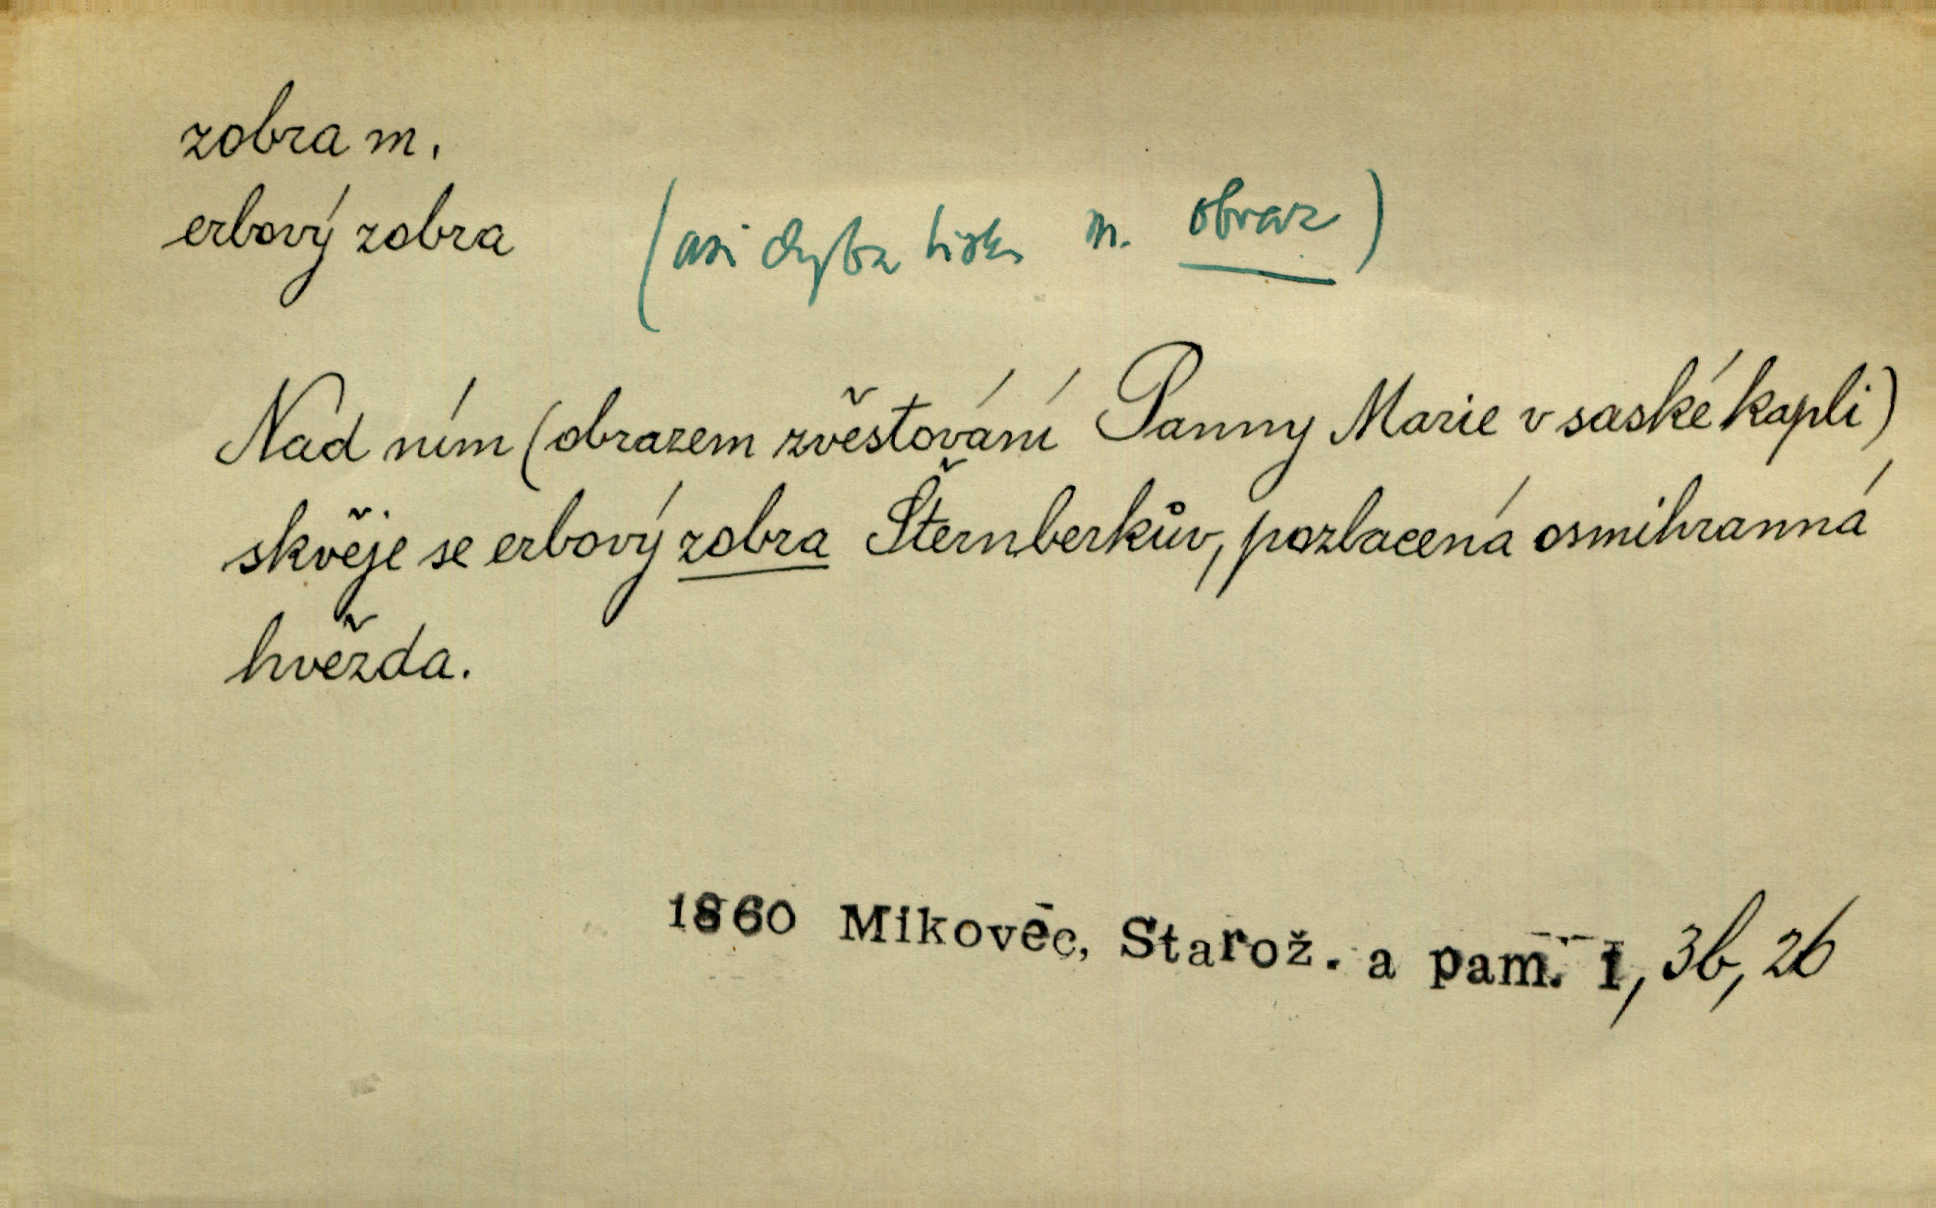 zobra m.
erbový zobra (asi chyba tisku m. obraz)
Nad ním (obrazem zvěstování Panny Marie v saské kapli)
skvěje se erbový zobra Šternberkův, pozlacená osmihranná
hvězda.
1860 Mikovec, Starož. a pam. I, 3b, 26